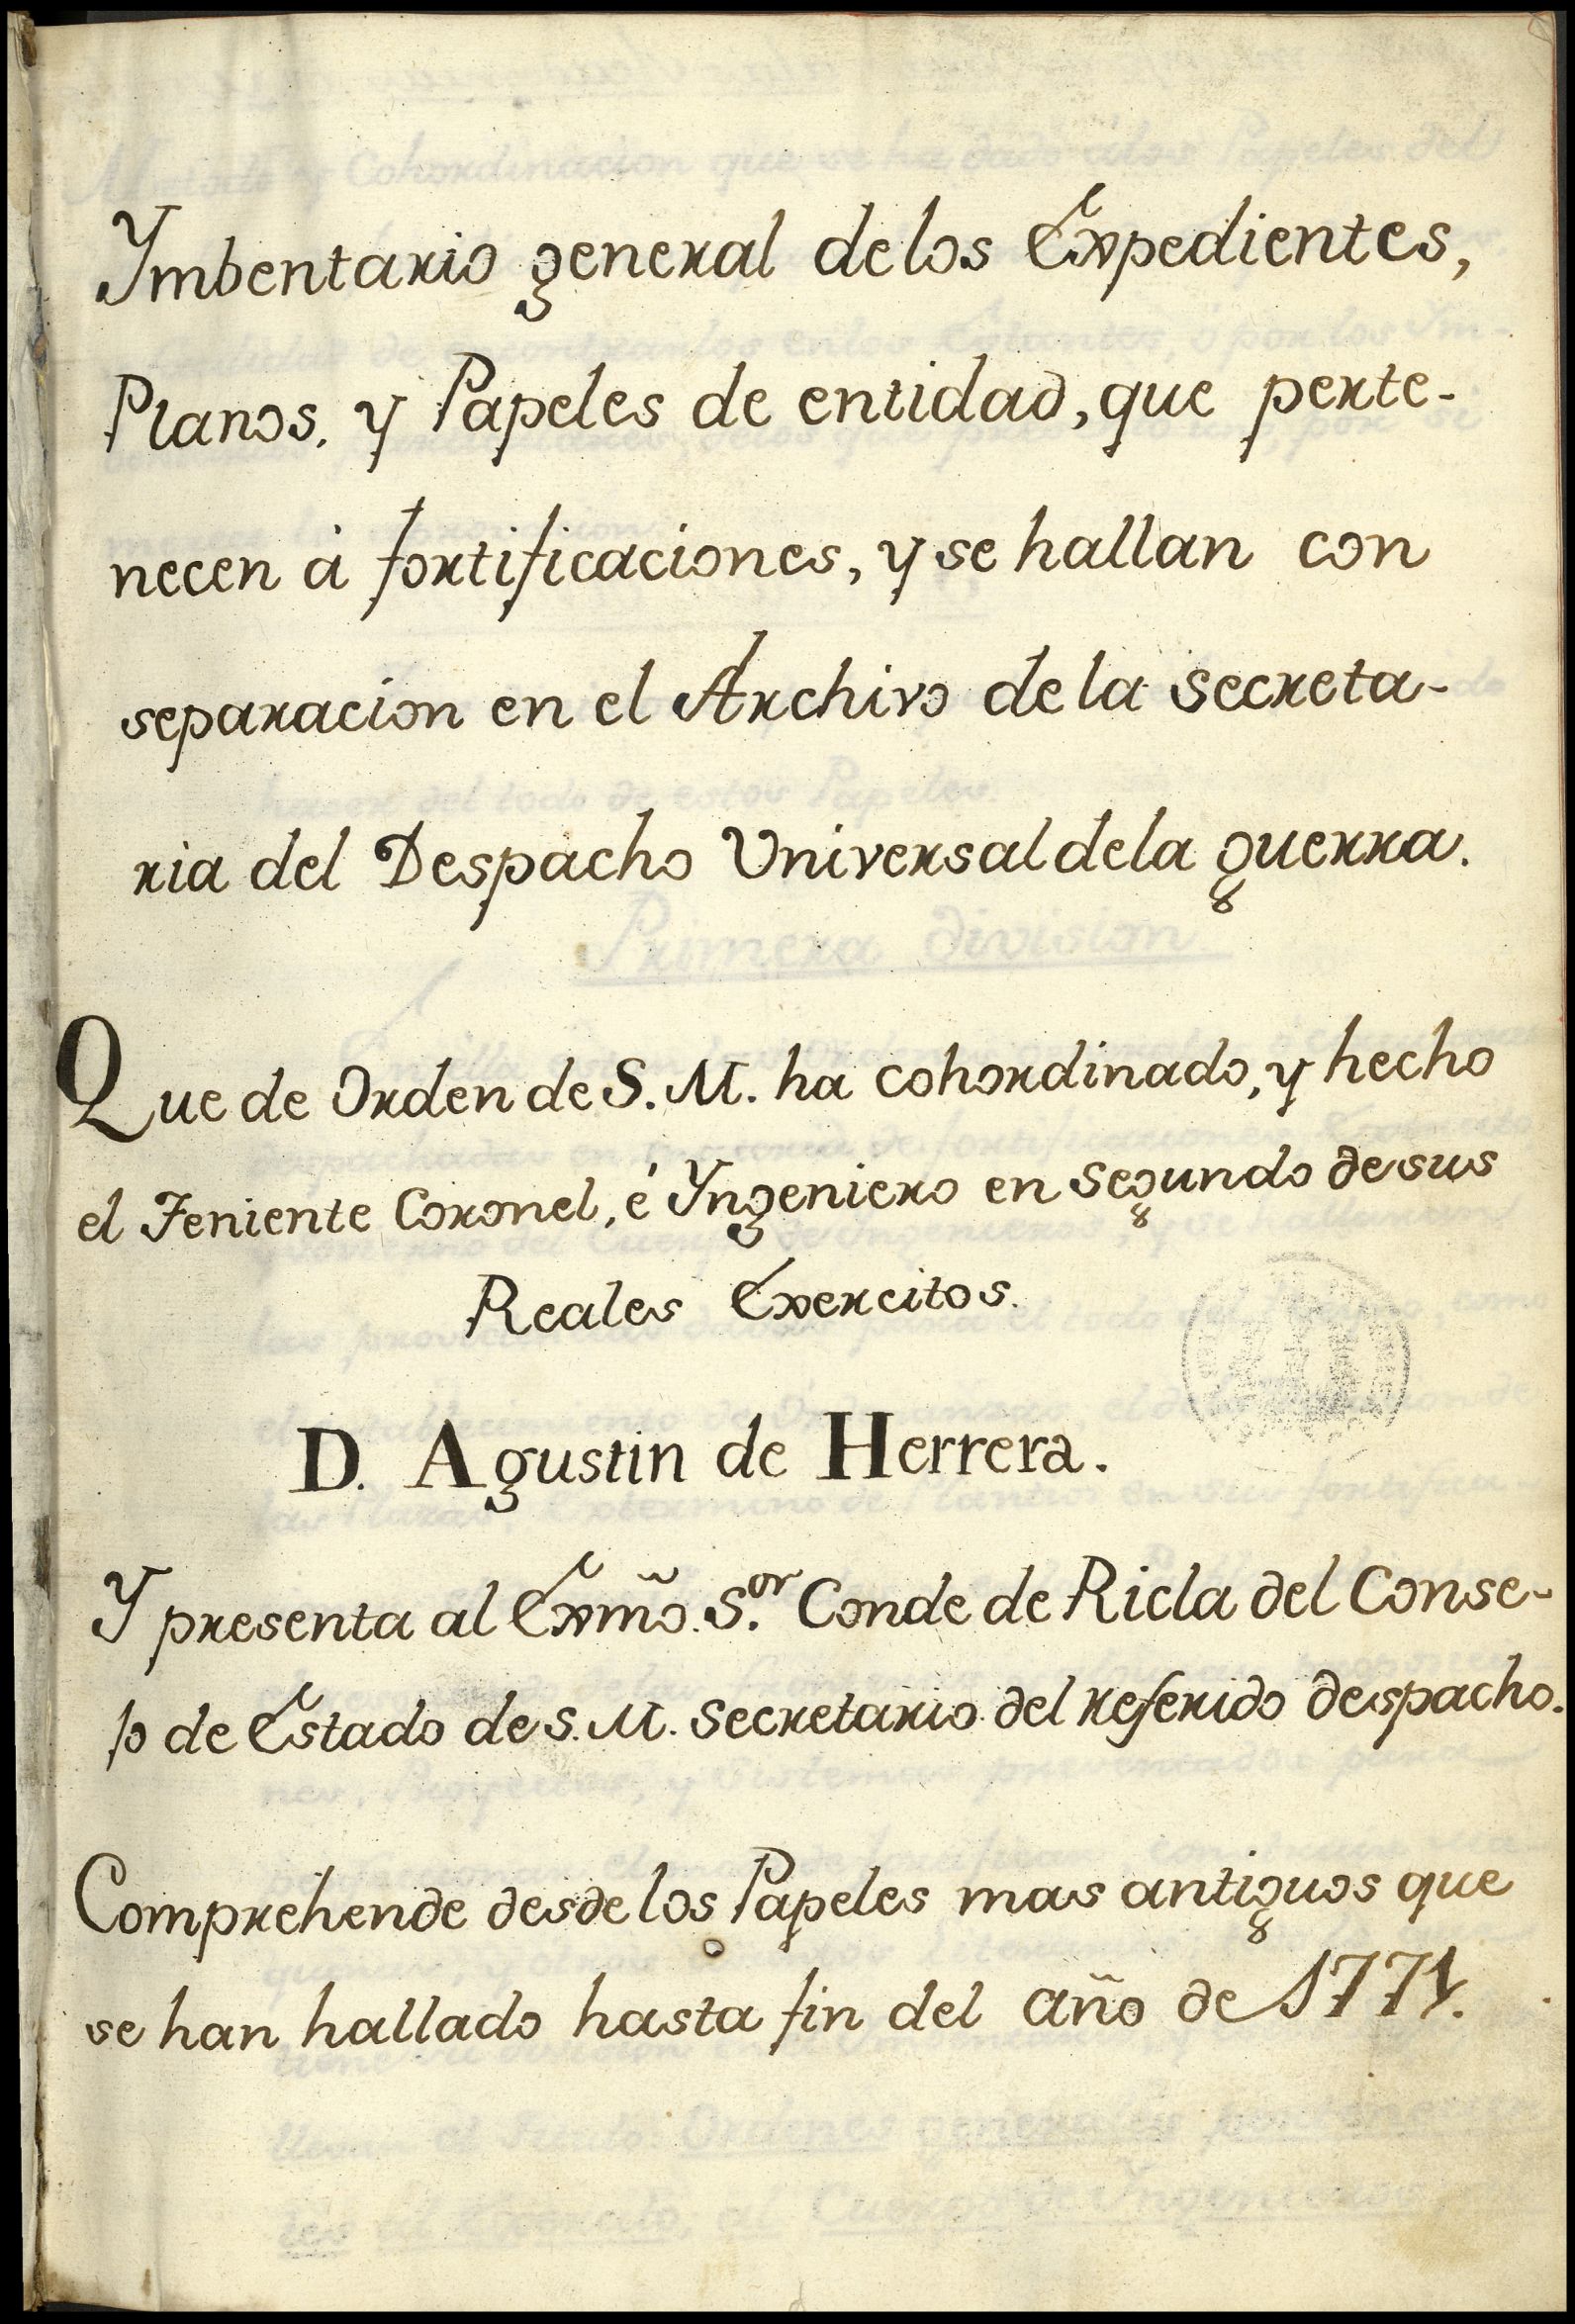 Ymbentario general delos Expedientes,
Planos, y Papeles de entidad, que perte-
necen á fortificaciones, y se hallan con
separacion en el Archivo dela Secreta-
ria del Despacho Universal dela guerra.
Que de Orden de S. M. ha cohordinado, y hecho
el Teniente Coronel, é Yngeniero en Segundo desus
Reales Exercitos.
D. Agustin de Herrera.
Y presenta al Exm̃o. S.or Conde de Ricla del Conse-
jo de Estado de S. M. Secretario del referido despacho.
Comprehende desde los Papeles mas antiguos que
se han hallado hasta fin del año de 1771.